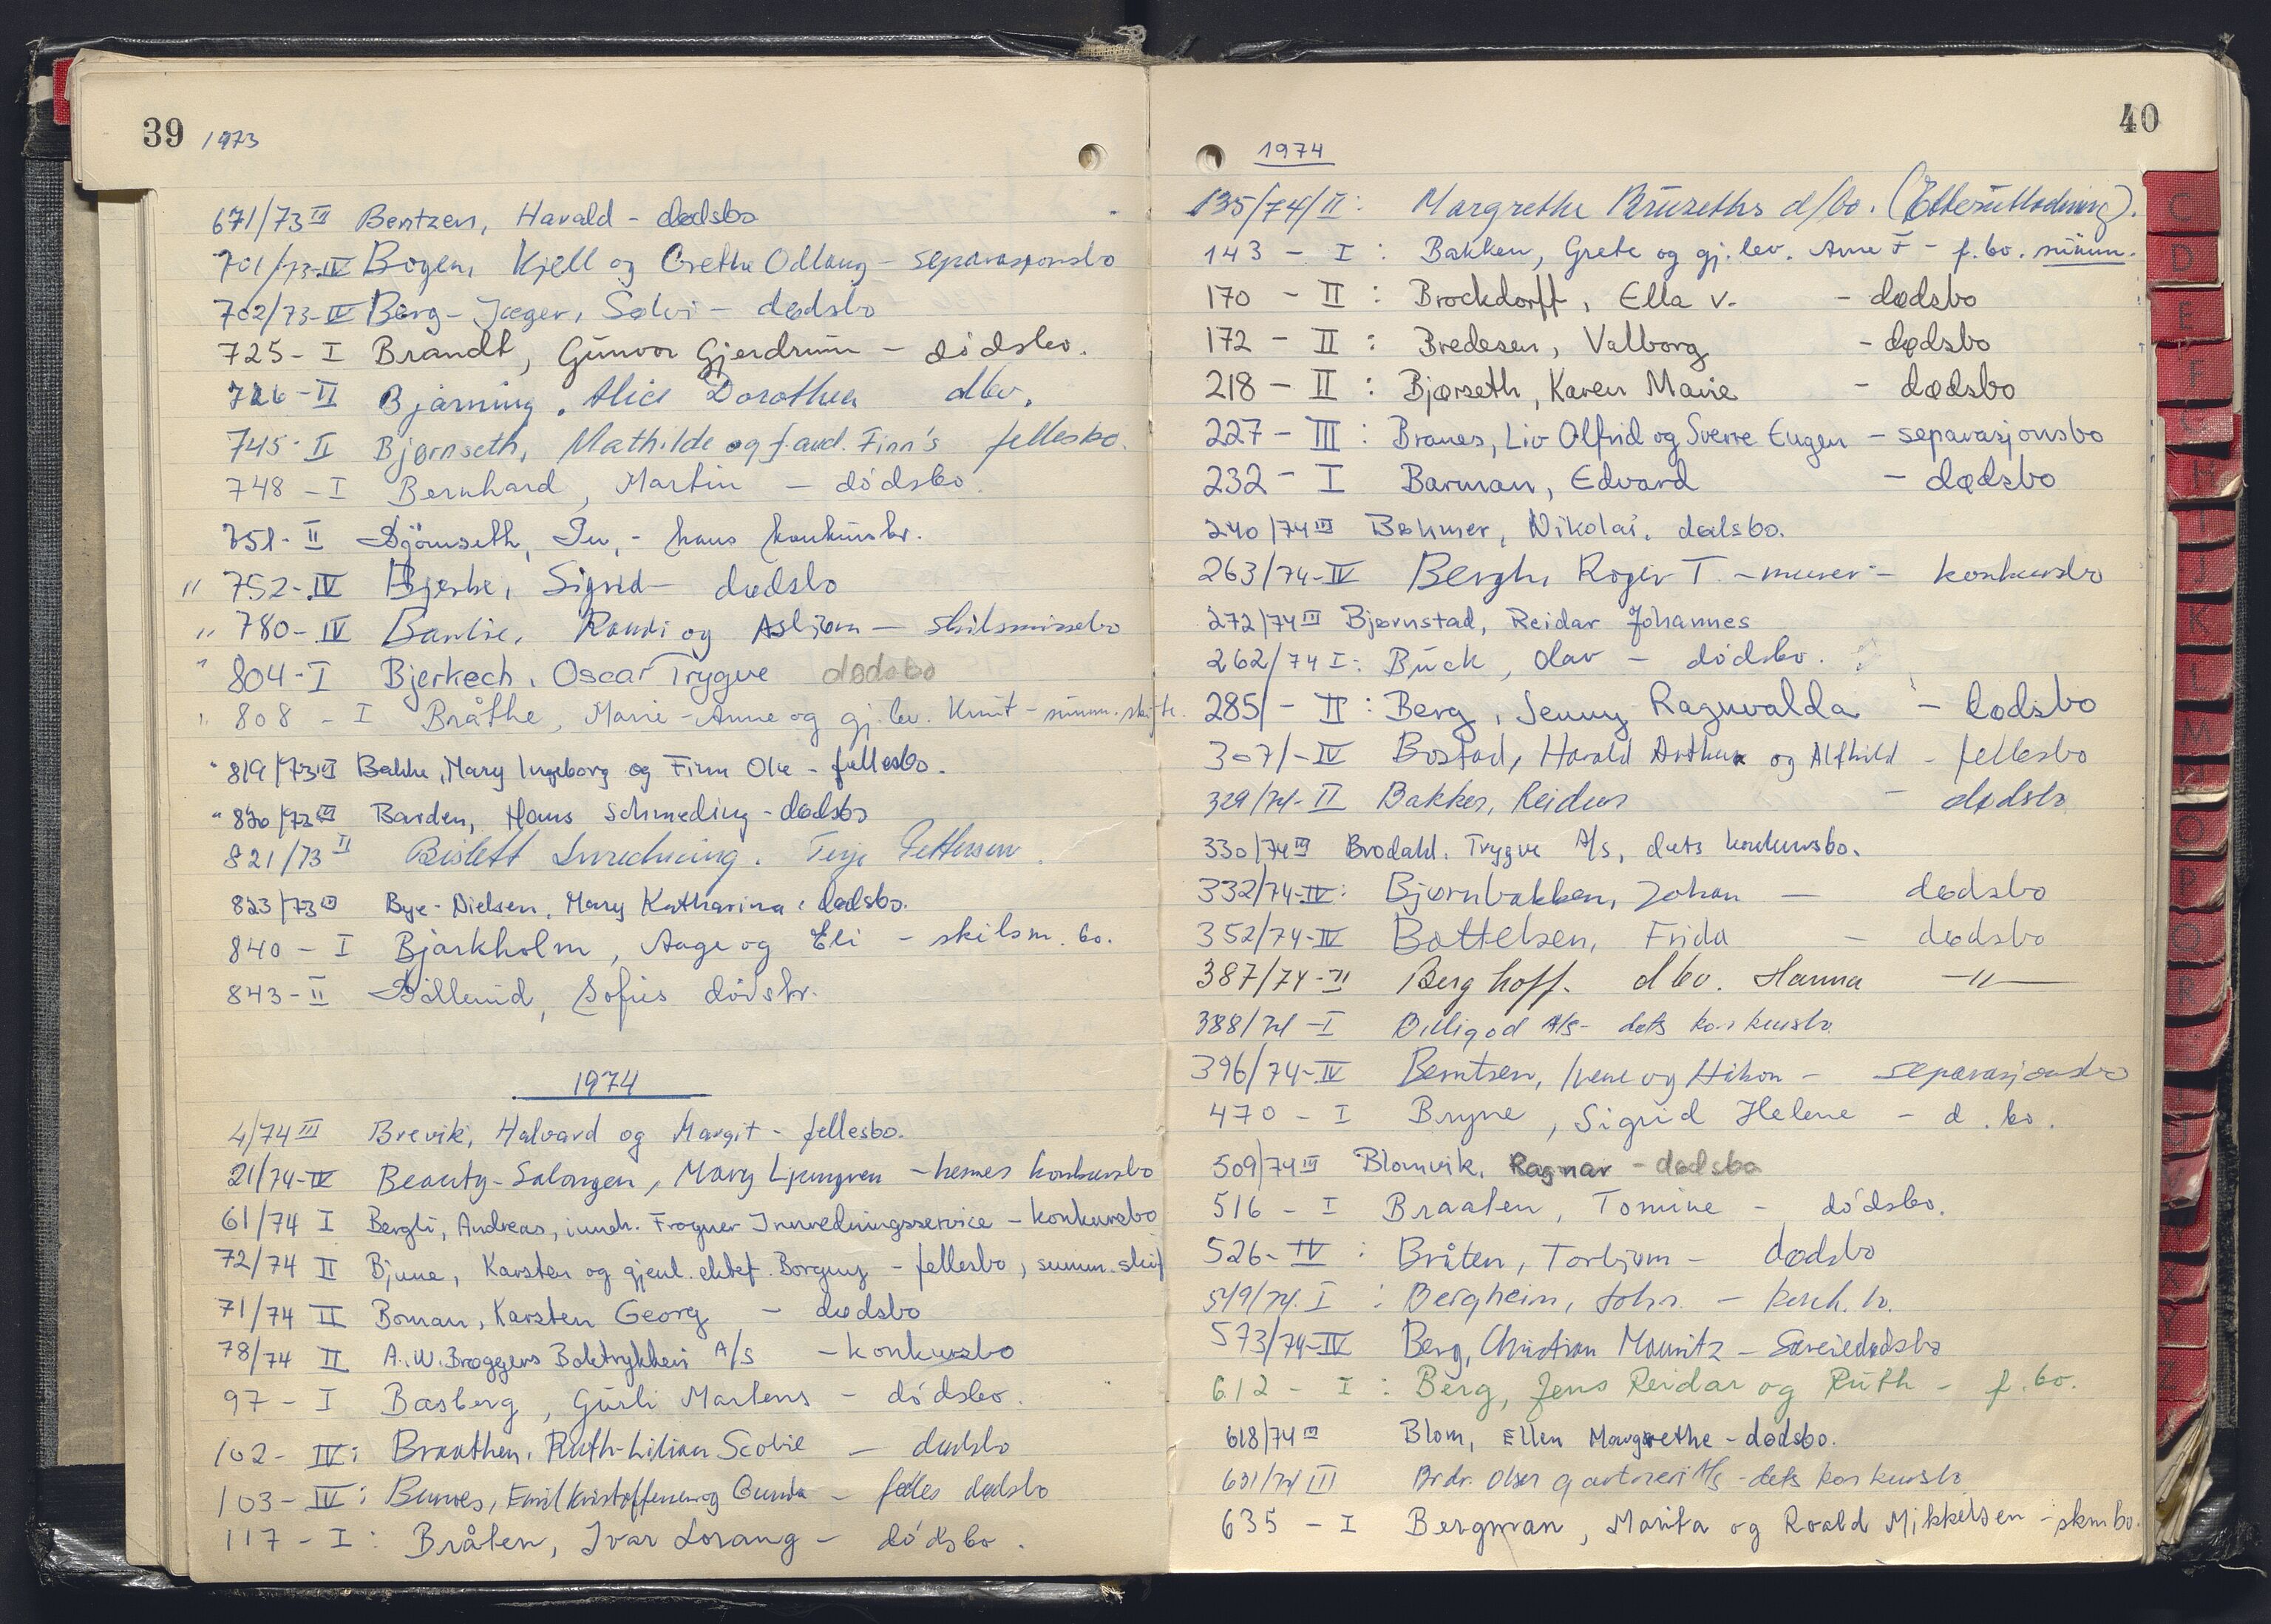 39 1973
671/73 III Bentzen, Harald - dødsbo
701/73-IV Bogen, Kjell og Grethe Odlaug - separasjonsbo
702/73-IV Berg-Jæger, Solvi - dødsbo
725 - I Brandt, Gunvor Gjerdrum - dødsbo.
726 - II Bjarning, Alice Dorothea dbo.
745 - II Bjørnseth, Mathilde og f. avd. Finn's fellesbo.
748 - I Bernhard, Martin - dødsbo.
751 - II Bjørnseth, - hans konkursbo.
" 752 - IV Bjerke, Sigrid - dødsbo
" 780 - IV Randi og Asbjørn - skilsmissebo
" 804 - I Bjerkech, Oscar Trygve dødsbo
" 808 - I Bråthe, Marie-Anne og gj. lev. Knut - summ. skifte.
" 819/73 III Bakke, Mary Ingeborg og Finn Ole - fellesbo.
" 820/73 III Barden, Hans Schmeding - dødsbo
821/73 II Bislett Innredning. Terje Pettersen.
823/73 III Bye-Nielsen, Mary Katharina, dødsbo.
840 - I Bjarkholm, Aage og Eli - skilsm. bo.
843 - II Sofies dødsbo.
1974
4/74 III Brevik, Halvard og Margit - fellesbo.
21/74-IV Beauty-Salongen, Mary Ljungren - hennes konkursbo
61/74 I Bergli, Andreas, inneh. Frogner Innredningsservice - konkursbo
72/74 II Bjune, Karsten og gjenl. ektef. Borgny - fellesbo, summ. skif
71/74 II Boman, Karsten Georg - dødsbo
78/74 II A.W. Brøggers Boktrykkeri A/S - konkursbo
97 - I Basberg, Gurli Martens - dødsbo.
102 - IV: Braathen, Ruth-Lilian Scobie - dødsbo
103 - IV: Emil Kristoffersen og Gunda - felles dødsbo
117 - I: Bråten, Ivar Lorang - dødsbo.
40
1974
135/74/II: Margrethe Bruseths d/bo. (Etterutlodning).
143 - I: Bakken, Grete og gj. lev. Arne F - f. bo. summ.
170 - II: Brockdorff, Ella v. - dødsbo
172 - II: Bredesen, Valborg - dødsbo
218 - II: Bjørseth, Karen Marie - dødsbo
227 - III: Branes, Liv Olfrid og Sverre Eugen - separasjonsbo
232 - I Barman, Edvard - dødsbo
240/74 III Bøhmer, Nikolai, dødsbo.
263/74-IV Bergh, Roger T. - murer - konkursbo
272/74 III Bjørnstad, Reidar Johannes
262/74 I: Buck, Olav - dødsbo.
285/ - II: Berg, Jenny Ragnvalda - dødsbo
307/ - IV Bostad, Harald Arthur og Alfhild - fellesbo
329/74-II Bakker, Reidun - dødsbo
330/74 III Brodahl. Trygve A/S, dets konkursbo.
332/74-IV: Bjørnbakken, Johan - dødsbo
352/74-IV Bottelsen, Frida - dødsbo
387/74-II Berghoff. dbo. Hanna -"-
388/74-I Billigod A/S - dets konkursbo.
396/74-IV Berntsen, Irene og Håkon - separasjonsbo
470 - I Bryne, Sigrid Helene - d. bo.
509/74 III Blomvik, Ragnar - dødsbo
516 - I Braaten, Tomine - dødsbo.
526 - IV: Bråten, Torbjørn - dødsbo
549/74. I: Bergheim, John. - konk. bo.
573/74-IV Berg, Christian Mauritz - Særeiedødsbo
612 - I: Berg, Jens Reidar og Ruth - f. bo.
618/74 III Blom, Ellen Margrethe - dødsbo.
631/74 III Brdr. Olsen gartneri A/S - dets konkursbo
635 - I Bergman, Marita og Roald Mikkelsen - skm bo.
C
D
E
F
H
I
J
K
L
M
N
O
P
Q
R